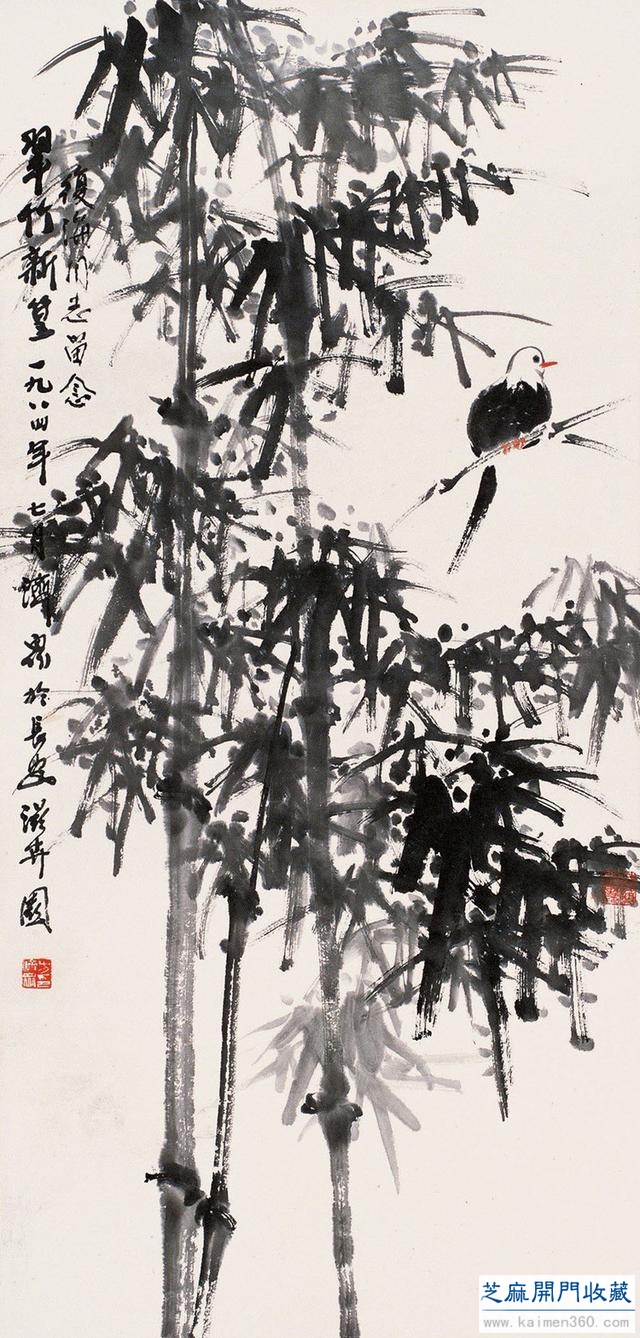 復海同志留念
翠竹新篁一九八四年七月濟眾於長安滋卉園
芝麻開門收藏
www.kaimen360.com